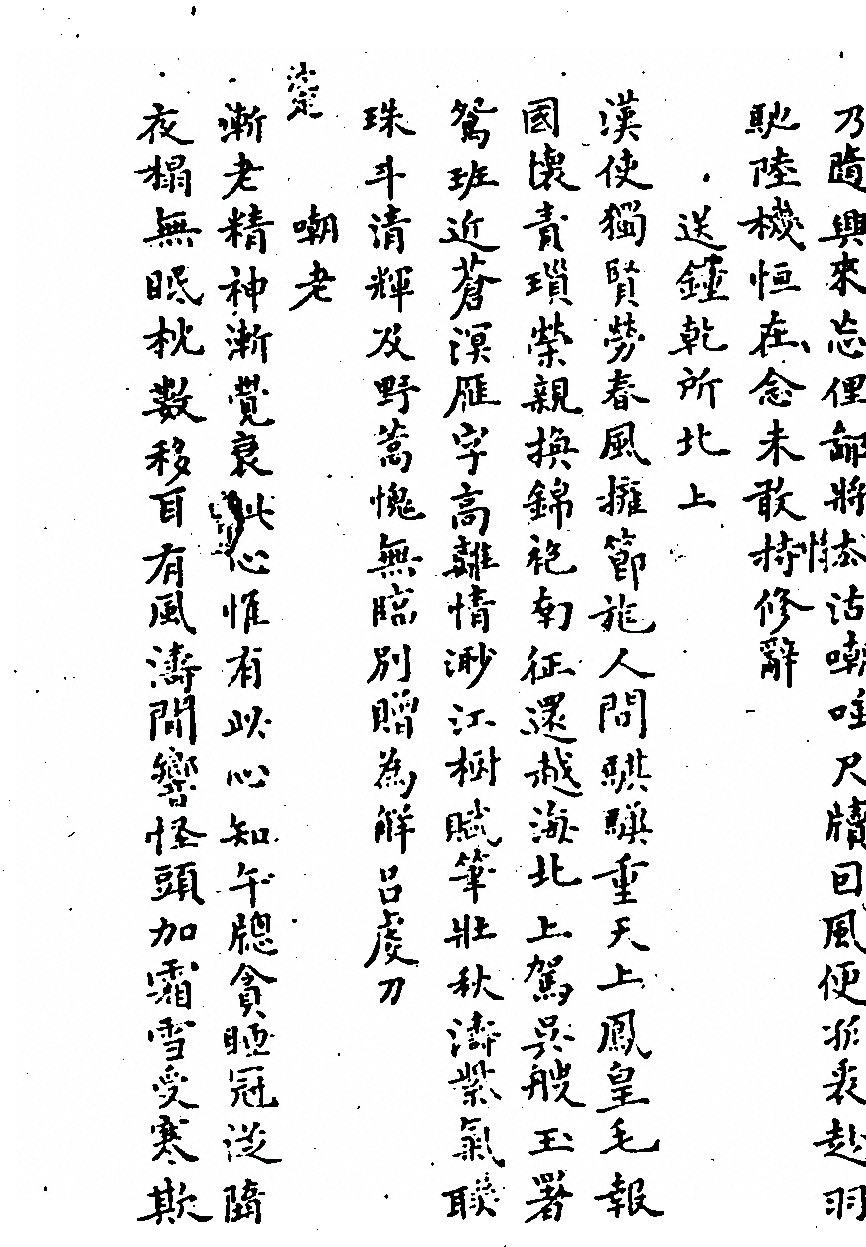 乃隨興來忘俚鄙將 沽嘲唾尺牘回風便 裘赴羽
馳陸機恒在念未敢恃修辭
送鍾乾所北上
漢使獨賢勞春風擁節旄人間騏驥重天上鳳皇毛報
國懷青瑣榮親換錦袍南征還越海北上駕吳艘玉署
鴛班近蒼溟雁字高離情渺江樹賦筆壯秋濤紫氣聯
珠斗清輝及野蒿愧無臨別贈為解呂虔刀
嘲老
漸老精神漸覺衰此心惟有此心知午牕貪睡冠從墮
夜榻無眠枕數移耳有風濤間響怪頭加霜雪受寒欺